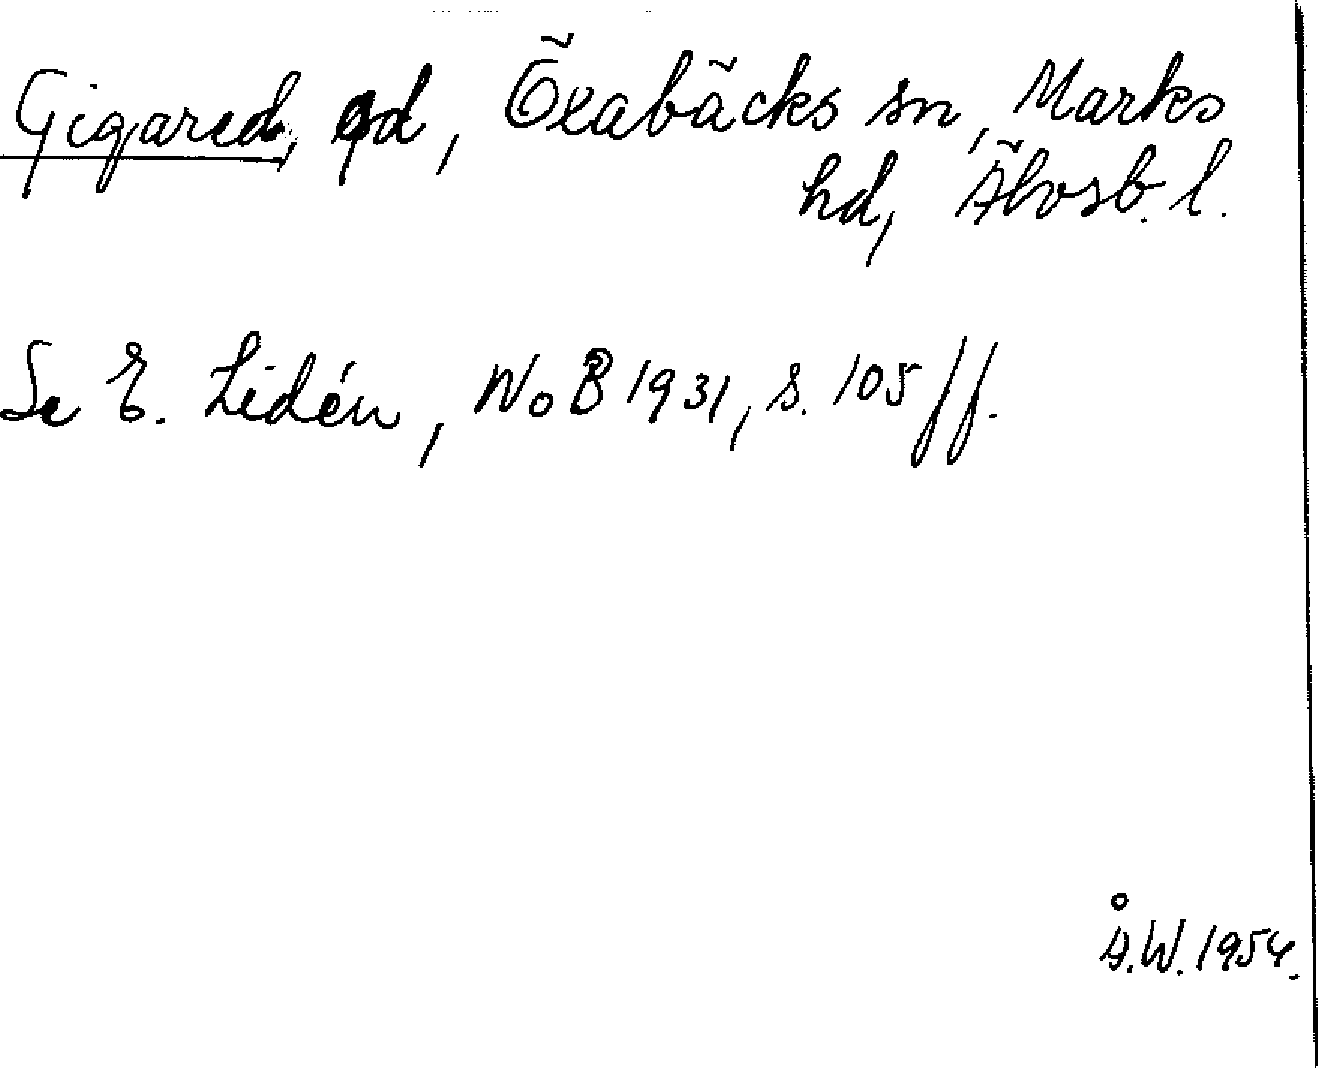 Gigared, gd, Öxabäcks sn, Marks
hd, Älvsb. l.
Se E. Lidén, NoB 1931, s. 105 ff.
Å.W. 1954.